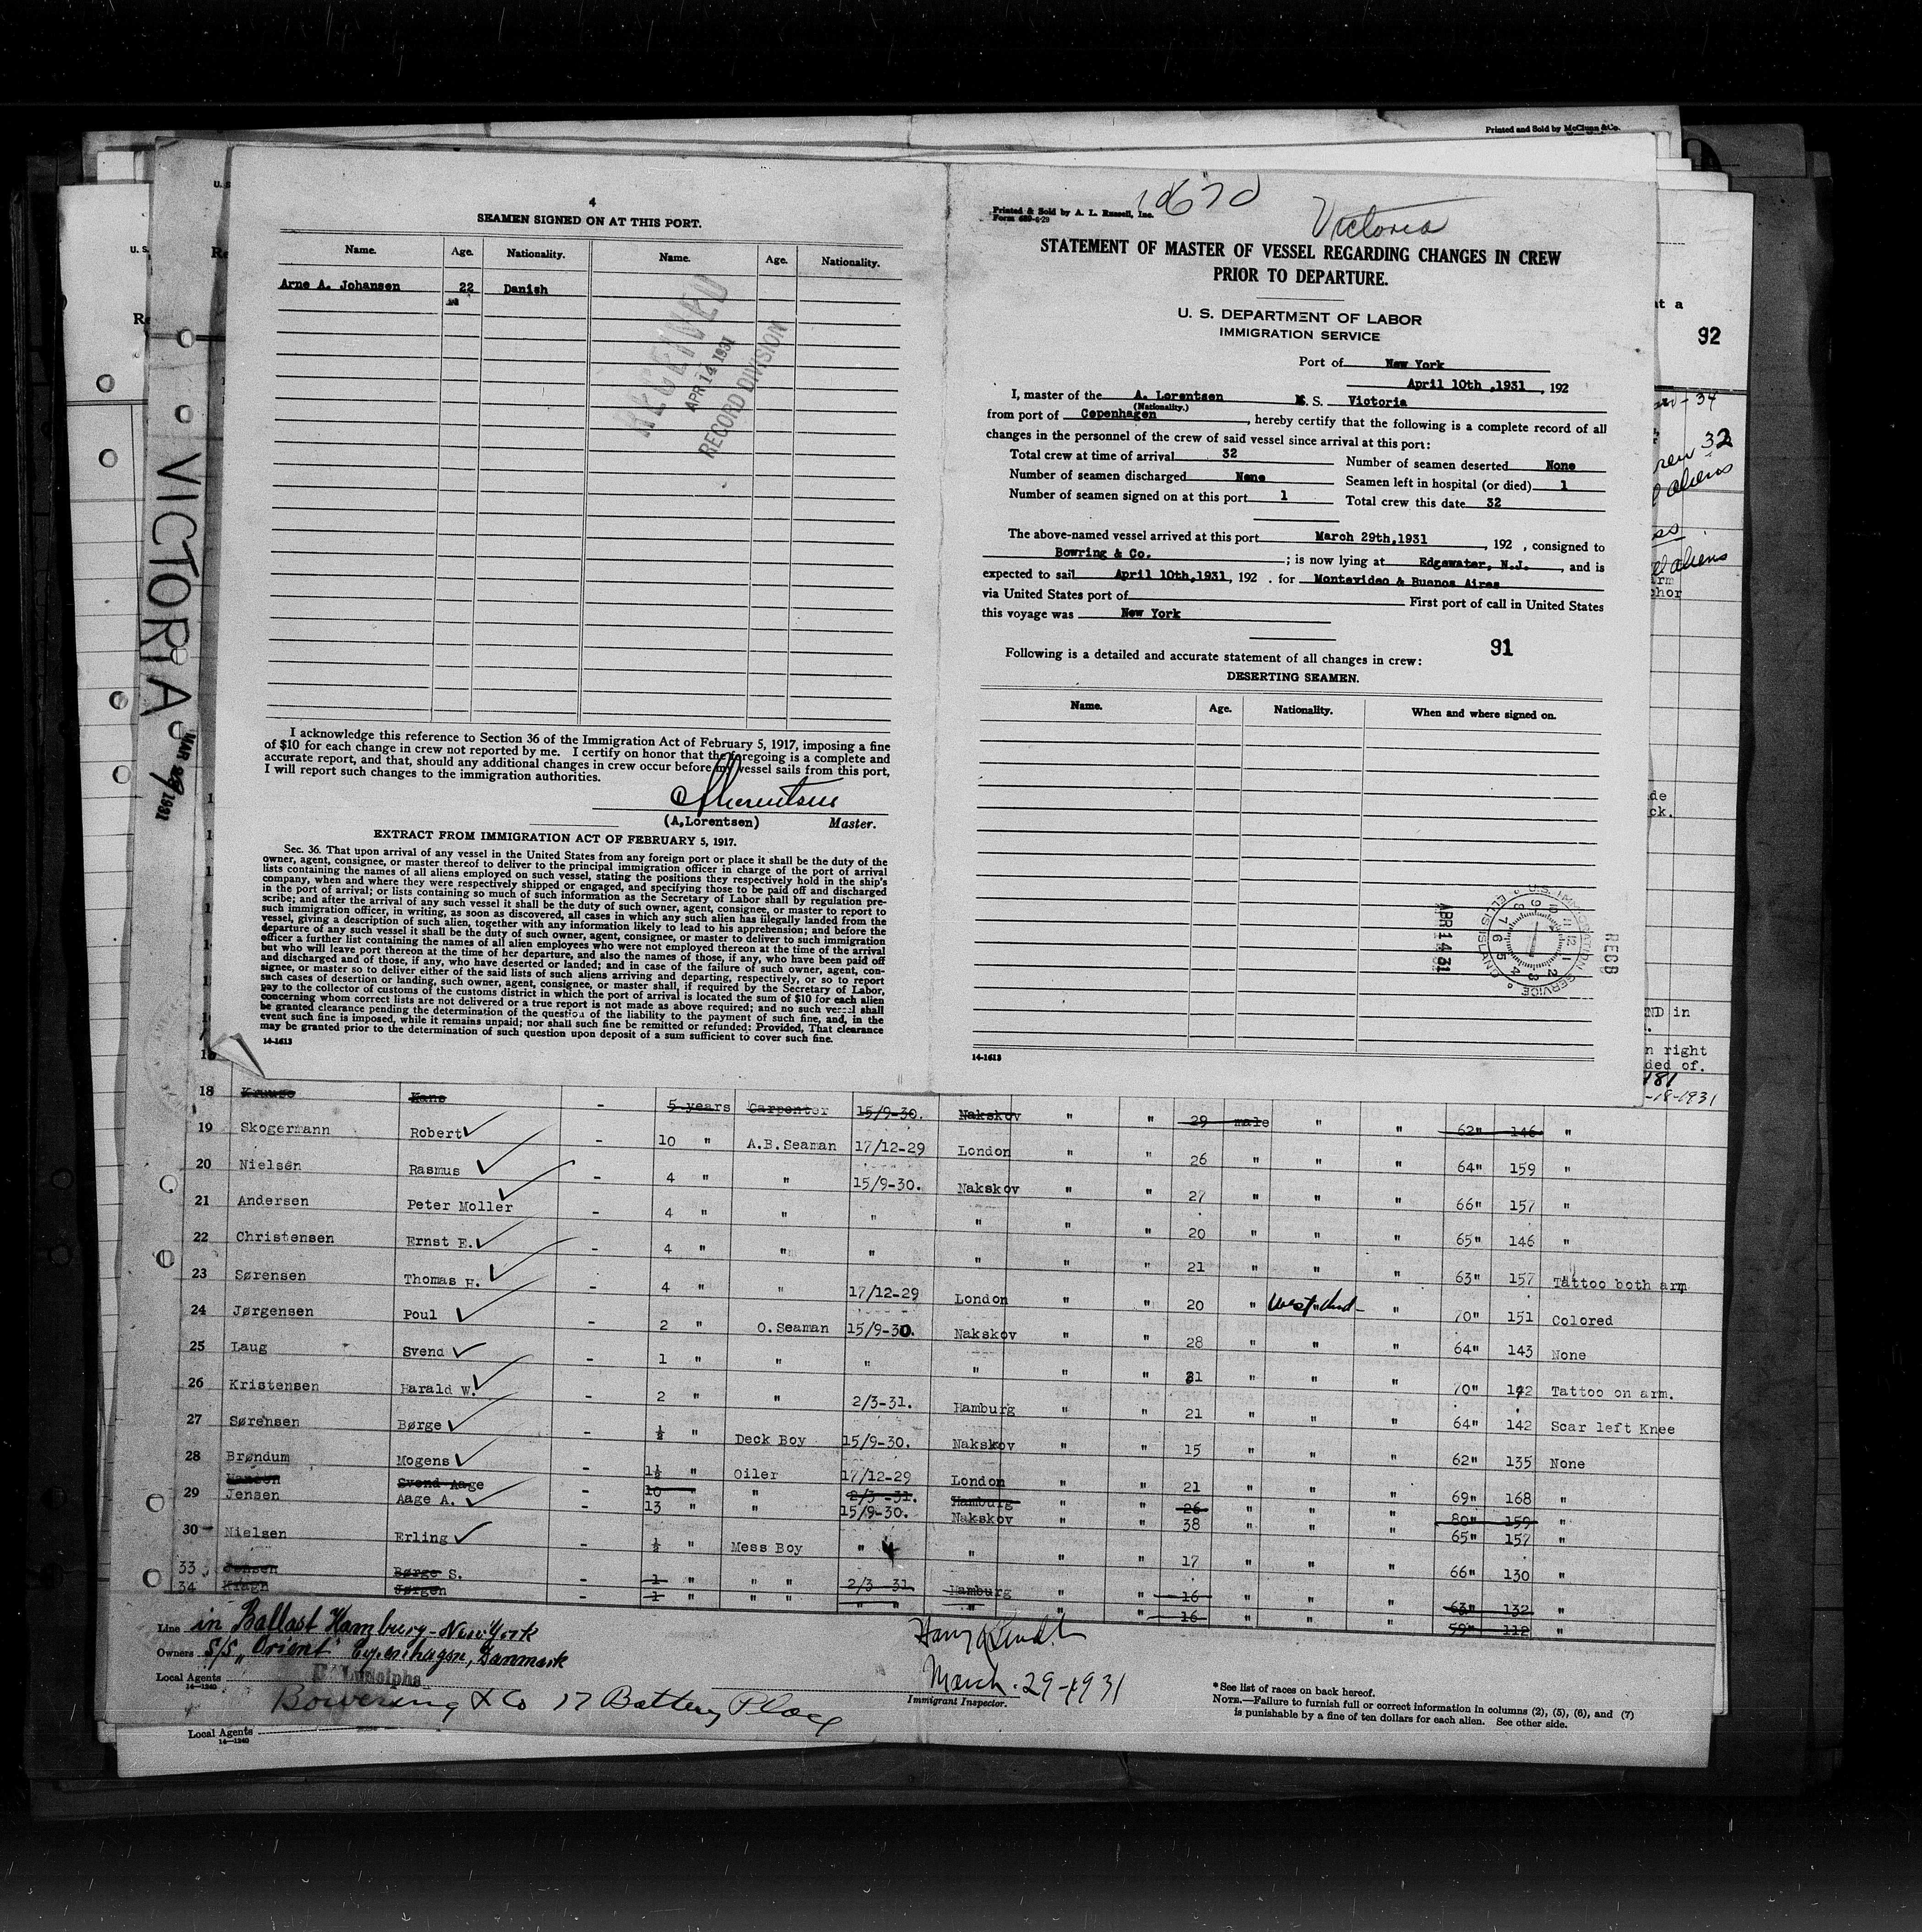 Printed and Sold by McClunn & Co.
4
SEAMEN SIGNED ON AT THIS PORT.
Name. Age. Nationality. Name. Age. Nationality.
Arne A. Johansen 22 Danish
RECEIVED
APR 14 1931
RECORD DIVISION
I acknowledge this reference to Section 36 of the Immigration Act of February 5, 1917, imposing a fine
of $10 for each change in crew not reported by me. I certify on honor that the foregoing is a complete and
accurate report, and that, should any additional changes in crew occur before my vessel sails from this port,
I will report such changes to the immigration authorities.
ALorentsen
(A,Lorentsen) Master.
EXTRACT FROM IMMIGRATION ACT OF FEBRUARY 5, 1917.
Sec. 36. That upon arrival of any vessel in the United States from any foreign port or place it shall be the duty of the
owner, agent, consignee, or master thereof to deliver to the principal immigration officer in charge of the port of arrival
lists containing the names of all aliens employed on such vessel, stating the positions they respectively hold in the ship's
company, when and where they were respectively shipped or engaged, and specifying those to be paid off and discharged
in the port of arrival; or lists containing so much of such information as the Secretary of Labor shall by regulation pre-
scribe; and after the arrival of any such vessel it shall be the duty of such owner, agent, consignee, or master to report to
such immigration officer, in writing, as soon as discovered, all cases in which any such alien has illegally landed from the
vessel, giving a description of such alien, together with any information likely to lead to his apprehension; and before the
departure of any such vessel it shall be the duty of such owner, agent, consignee, or master to deliver to such immigration
officer a further list containing the names of all alien employees who were not employed thereon at the time of the arrival
but who will leave port thereon at the time of her departure, and also the names of those, if any, who have been paid off
and discharged and of those, if any, who have deserted or landed; and in case of the failure of such owner, agent, con-
signee, or master so to deliver either of the said lists of such aliens arriving and departing, respectively, or so to report
such cases of desertion or landing, such owner, agent, consignee, or master shall, if required by the Secretary of Labor,
pay to the collector of customs of the customs district in which the port of arrival is located the sum of $10 for each alien
concerning whom correct lists are not delivered or a true report is not made as above required; and no such vessel shall
be granted clearance pending the determination of the question of the liability to the payment of such fine, and, in the
event such fine is imposed, while it remains unpaid; nor shall such fine be remitted or refunded: Provided, That clearance
may be granted prior to the determination of such question upon deposit of a sum sufficient to cover such fine.
14-1613
Printed & Sold by A. L. Russell, Inc.
Form 689-6-29
Victoria
STATEMENT OF MASTER OF VESSEL REGARDING CHANGES IN CREW
PRIOR TO DEPARTURE.
U. S. DEPARTMENT OF LABOR
IMMIGRATION SERVICE
Port of New York
April 10th ,1931 , 192
I, master of the A. Lorentsen M. S. Victoria
(Nationality.)
from port of Copenhagen , hereby certify that the following is a complete record of all
changes in the personnel of the crew of said vessel since arrival at this port:
Total crew at time of arrival 32 Number of seamen deserted None
Number of seamen discharged None Seamen left in hospital (or died) 1
Number of seamen signed on at this port 1 Total crew this date 32
The above-named vessel arrived at this port March 29th,1931 , 192 , consigned to
Bowring & Co. ; is now lying at Edgewater, N.J. , and is
expected to sail April 10th,1931 , 192 . for Montevideo & Buenos Aires
via United States port of First port of call in United States
this voyage was New York
91
Following is a detailed and accurate statement of all changes in crew:
DESERTING SEAMEN.
Name. Age. Nationality. When and where signed on.
U.S. IMMIGRATION SERVICE ELLIS ISLAND
APR 14 31
RECD
14-1613
92
VICTORIA
MAR 29 1931
18 Krause Hans - 5 years Carpenter 15/9-30. Nakskov " " 29 male " " 62" 146 "
19 Skogermann Robert - 10 " A.B.Seaman 17/12-29 London " " 26 " " " 64" 159 "
20 Nielsen Rasmus - 4 " " 15/9-30. Nakskov " " 27 " " " 66" 157 "
21 Andersen Peter Moller - 4 " " " " " " 20 " " " 65" 146 "
22 Christensen Ernst E. - 4 " " " " " " 21 " " " 63" 157 Tattoo both arm
23 Sørensen Thomas H. - 4 " " 17/12-29 London " " 20 " West Ind- " 70" 151 Colored
24 Jørgensen Poul - 2 " O.Seaman 15/9-30. Nakskov " " 28 " " " 64" 143 None
25 Laug Svend - 1 " " " " " " 21 " " " 70" 142 Tattoo on arm.
26 Kristensen Harald W. - 2 " " 2/3-31. Hamburg " " 21 " " " 64" 142 Scar left Knee
27 Sørensen Børge - ½ " Deck Boy 15/9-30. Nakskov " " 15 " " " 62" 135 None
28 Brøndum Mogens - 1½ " Oiler 17/12-29 London " " 21 " " " 69" 168 "
Hansen Svend Aage - 10 " " 2/3-31. Hamburg " " 26 " " " 80" 159 "
29 Jensen Aage A. - 13 " " 15/9-30. Nakskov " " 38 " " " 65" 157 "
30 Nielsen Erling - ½ " Mess Boy " " " " 17 " " " 66" 130 "
33 Jensen Børge S. - 1 " " " 2/3-31 Hamburg " " 16 " " " 63" 132 "
34 Kragh Jørgen - 1 " " " " " " " " 16 " " " 59" 112 "
Line in Ballast Hamburg-New-York
Owners S/S "Orient" Copenhagen, Danmark
Local Agents
14-1240
Bowering & Co 17 Battery Place
March. 29-1931
Immigrant Inspector.
*See list of races on back hereof.
NOTE.—Failure to furnish full or correct information in columns (2), (5), (6), and (7)
is punishable by a fine of ten dollars for each alien. See other side.
Local Agents
14-1240